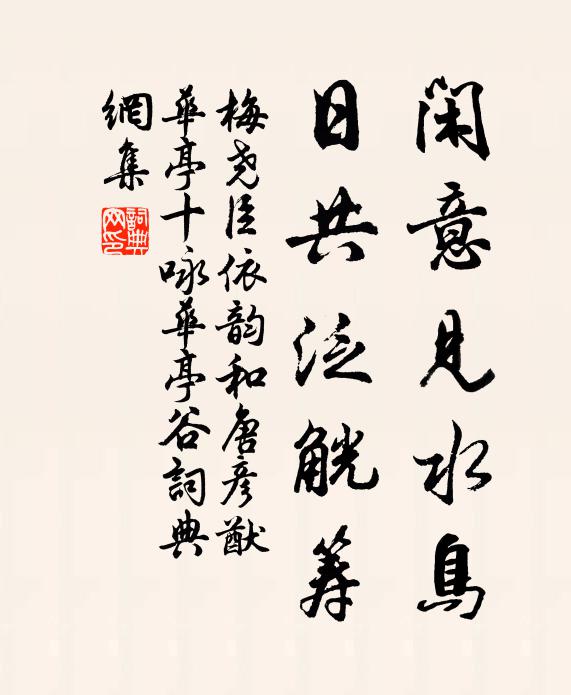 閑意見水鳥
日共泛觥籌
梅堯臣依韵和唐彥猷
華亭十咏華亭谷詞典
網集
詞典
网印